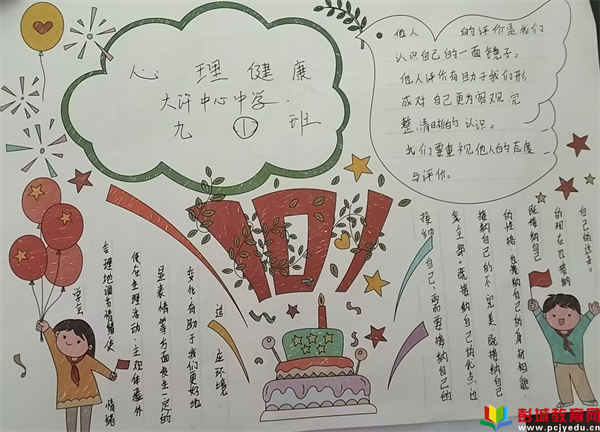 心理健康
大许中心中学.
九 ① 班
他人 的评价是我们
认识自己的一面镜子。
他人评价有助于我们形
成对自己更为客观、完
整、清晰的认识。
我们要重视他人的态度
与评价。
101
学会
合理地调节情绪
情绪
使在生理活动、主观体验外
显表情等方面发生一定的
变化,有助于我们更好地
适应环境
接纳自己,需要接纳自己的
全部。既接纳自己的优点,也
接纳自己的不完美既接纳自己
的性格也接纳自己的身材相貌
既接纳自己
的现在也接纳
自己的过去。
彭城教育网
www.pcjyedu.cn